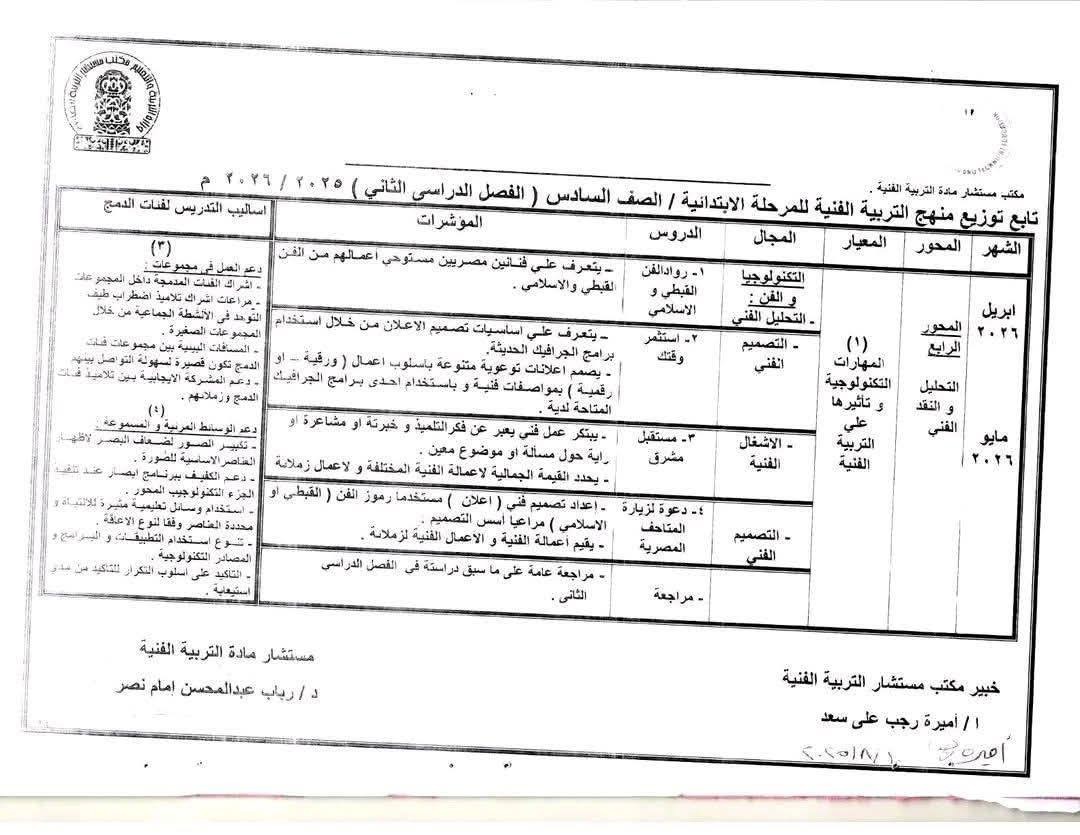 ١٢
مكتب مستشار مادة التربية الفنية .
تابع توزيع منهج التربية الفنية للمرحلة الابتدائية / الصف السادس ( الفصل الدراسى الثاني ) ٢٠٢٥ / ٢٠٢٦ م
الشهر
المحور
المعيار
المجال
الدروس
المؤشرات
اساليب التدريس لفئات الدمج
ابريل
٢٠٢٦
مايو
٢٠٢٦
المحور
الرابع
التحليل
و النقد
الفني
(١)
المهارات
التكنولوجية
و تأثيرها
علي
التربية
الفنية
التكنولوجيا
و الفن :
- التحليل الفني
١- روادالفن
القبطي و
الاسلامي
– يتعرف علي فنانين مصريين مستوحي اعمالهم من الفن
القبطي والاسلامي .
- التصميم
الفني
٢- استثمر
وقتك
– يتعرف علي اساسيات تصميم الاعلان من خلال استخدام
برامج الجرافيك الحديثة.
- يصمم اعلانات توعوية متنوعة باسلوب اعمال ( ورقية – او
رقمية ) بمواصفات فنية و باستخدام احدى برامج الجرافيك
المتاحة لدية .
- الاشغال
الفنية
٣- مستقبل
مشرق
- يبتكر عمل فني يعبر عن فكرالتلميذ و خبرتة او مشاعرة او
راية حول مسألة او موضوع معين .
- يحدد القيمة الجمالية لاعمالة الفنية المختلفة و لاعمال زملانة
- التصميم
الفني
٤- دعوة لزيارة
المتاحف
المصرية
- اعداد تصميم فني ( اعلان ) مستخدما رموز الفن ( القبطي او
الاسلامي ) مراعيا أسس التصميم .
- يقيم أعمالة الفنية و الاعمال الفنية لزملانة .
- مراجعة
- مراجعة عامة على ما سبق دراستة في الفصل الدراسى
الثانى .
(٣)
دعم العمل فى مجموعات :
- اشراك الفئات المدمجة داخل المجموعات
- مراعات اشراك تلاميذ اضطراب طيف
التوحد فى الأنشطة الجماعية من خلال
المجموعات الصغيرة .
- المسافات البينية بين مجموعات فئات
الدمج تكون قصيرة لسهولة التواصل بينهم
- دعم المشركة الايجابية بين تلاميذ فئات
الدمج وزملانهم .
(٤)
دعم الوسائط المرئية و المسموعة :
- تكبير الصور لضعاف البصر لاظهار
العناصر الاساسية للصورة .
- دعم الكفيف ببرنامج ابصار عند تنفيذ
الجزء التكنولوجيب المحور .
- استخدام وسائل تعليمية مثيرة للانتباة و
محددة العناصر وفقا لنوع الاعاقة .
- تنوع استخدام التطبيقات و البرامج و
المصادر التكنولوجية .
- التاكيد على اسلوب التكرار للتاكيد من مدى
استيعابة .
خبير مكتب مستشار التربية الفنية
ا / أميرة رجب على سعد
مستشار مادة التربية الفنية
د / رباب عبدالمحسن امام نصر